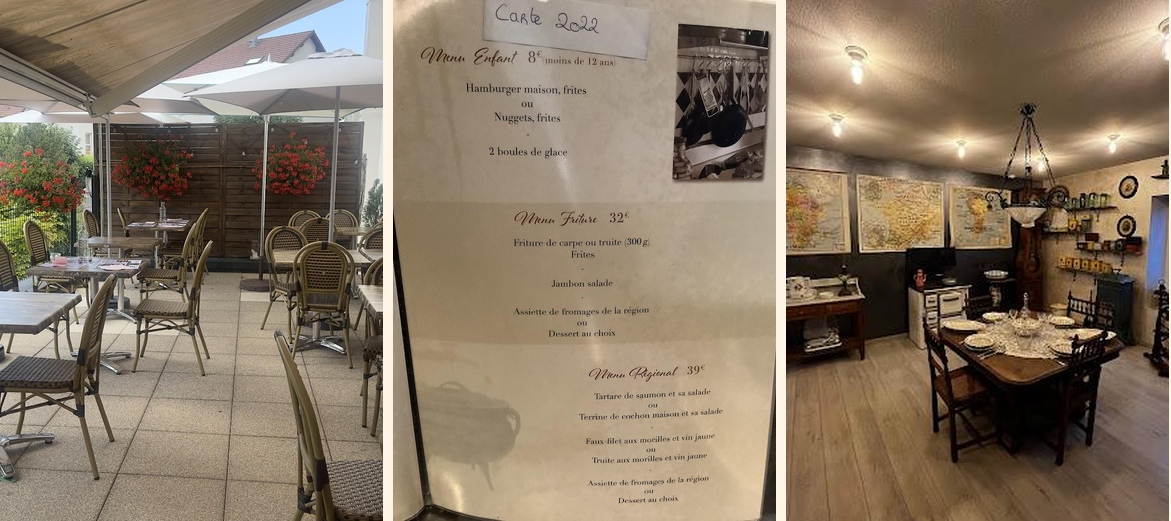 Carte 2022
Menu Enfant 8€ (moins de 12 ans)
Hamburger maison, frites
ou
Nuggets, frites
-
2 boules de glace
Menu Friture 32€
Friture de carpe ou truite (300g)
Frites
-
Jambon salade
-
Assiette de fromages de la région
ou
Dessert au choix
Menu Régional 39€
Tartare de saumon et sa salade
ou
Terrine de cochon maison et sa salade
-
Faux-filet aux morilles et vin jaune
ou
Truite aux morilles et vin jaune
-
Assiette de fromages de la région
ou
Dessert au choix